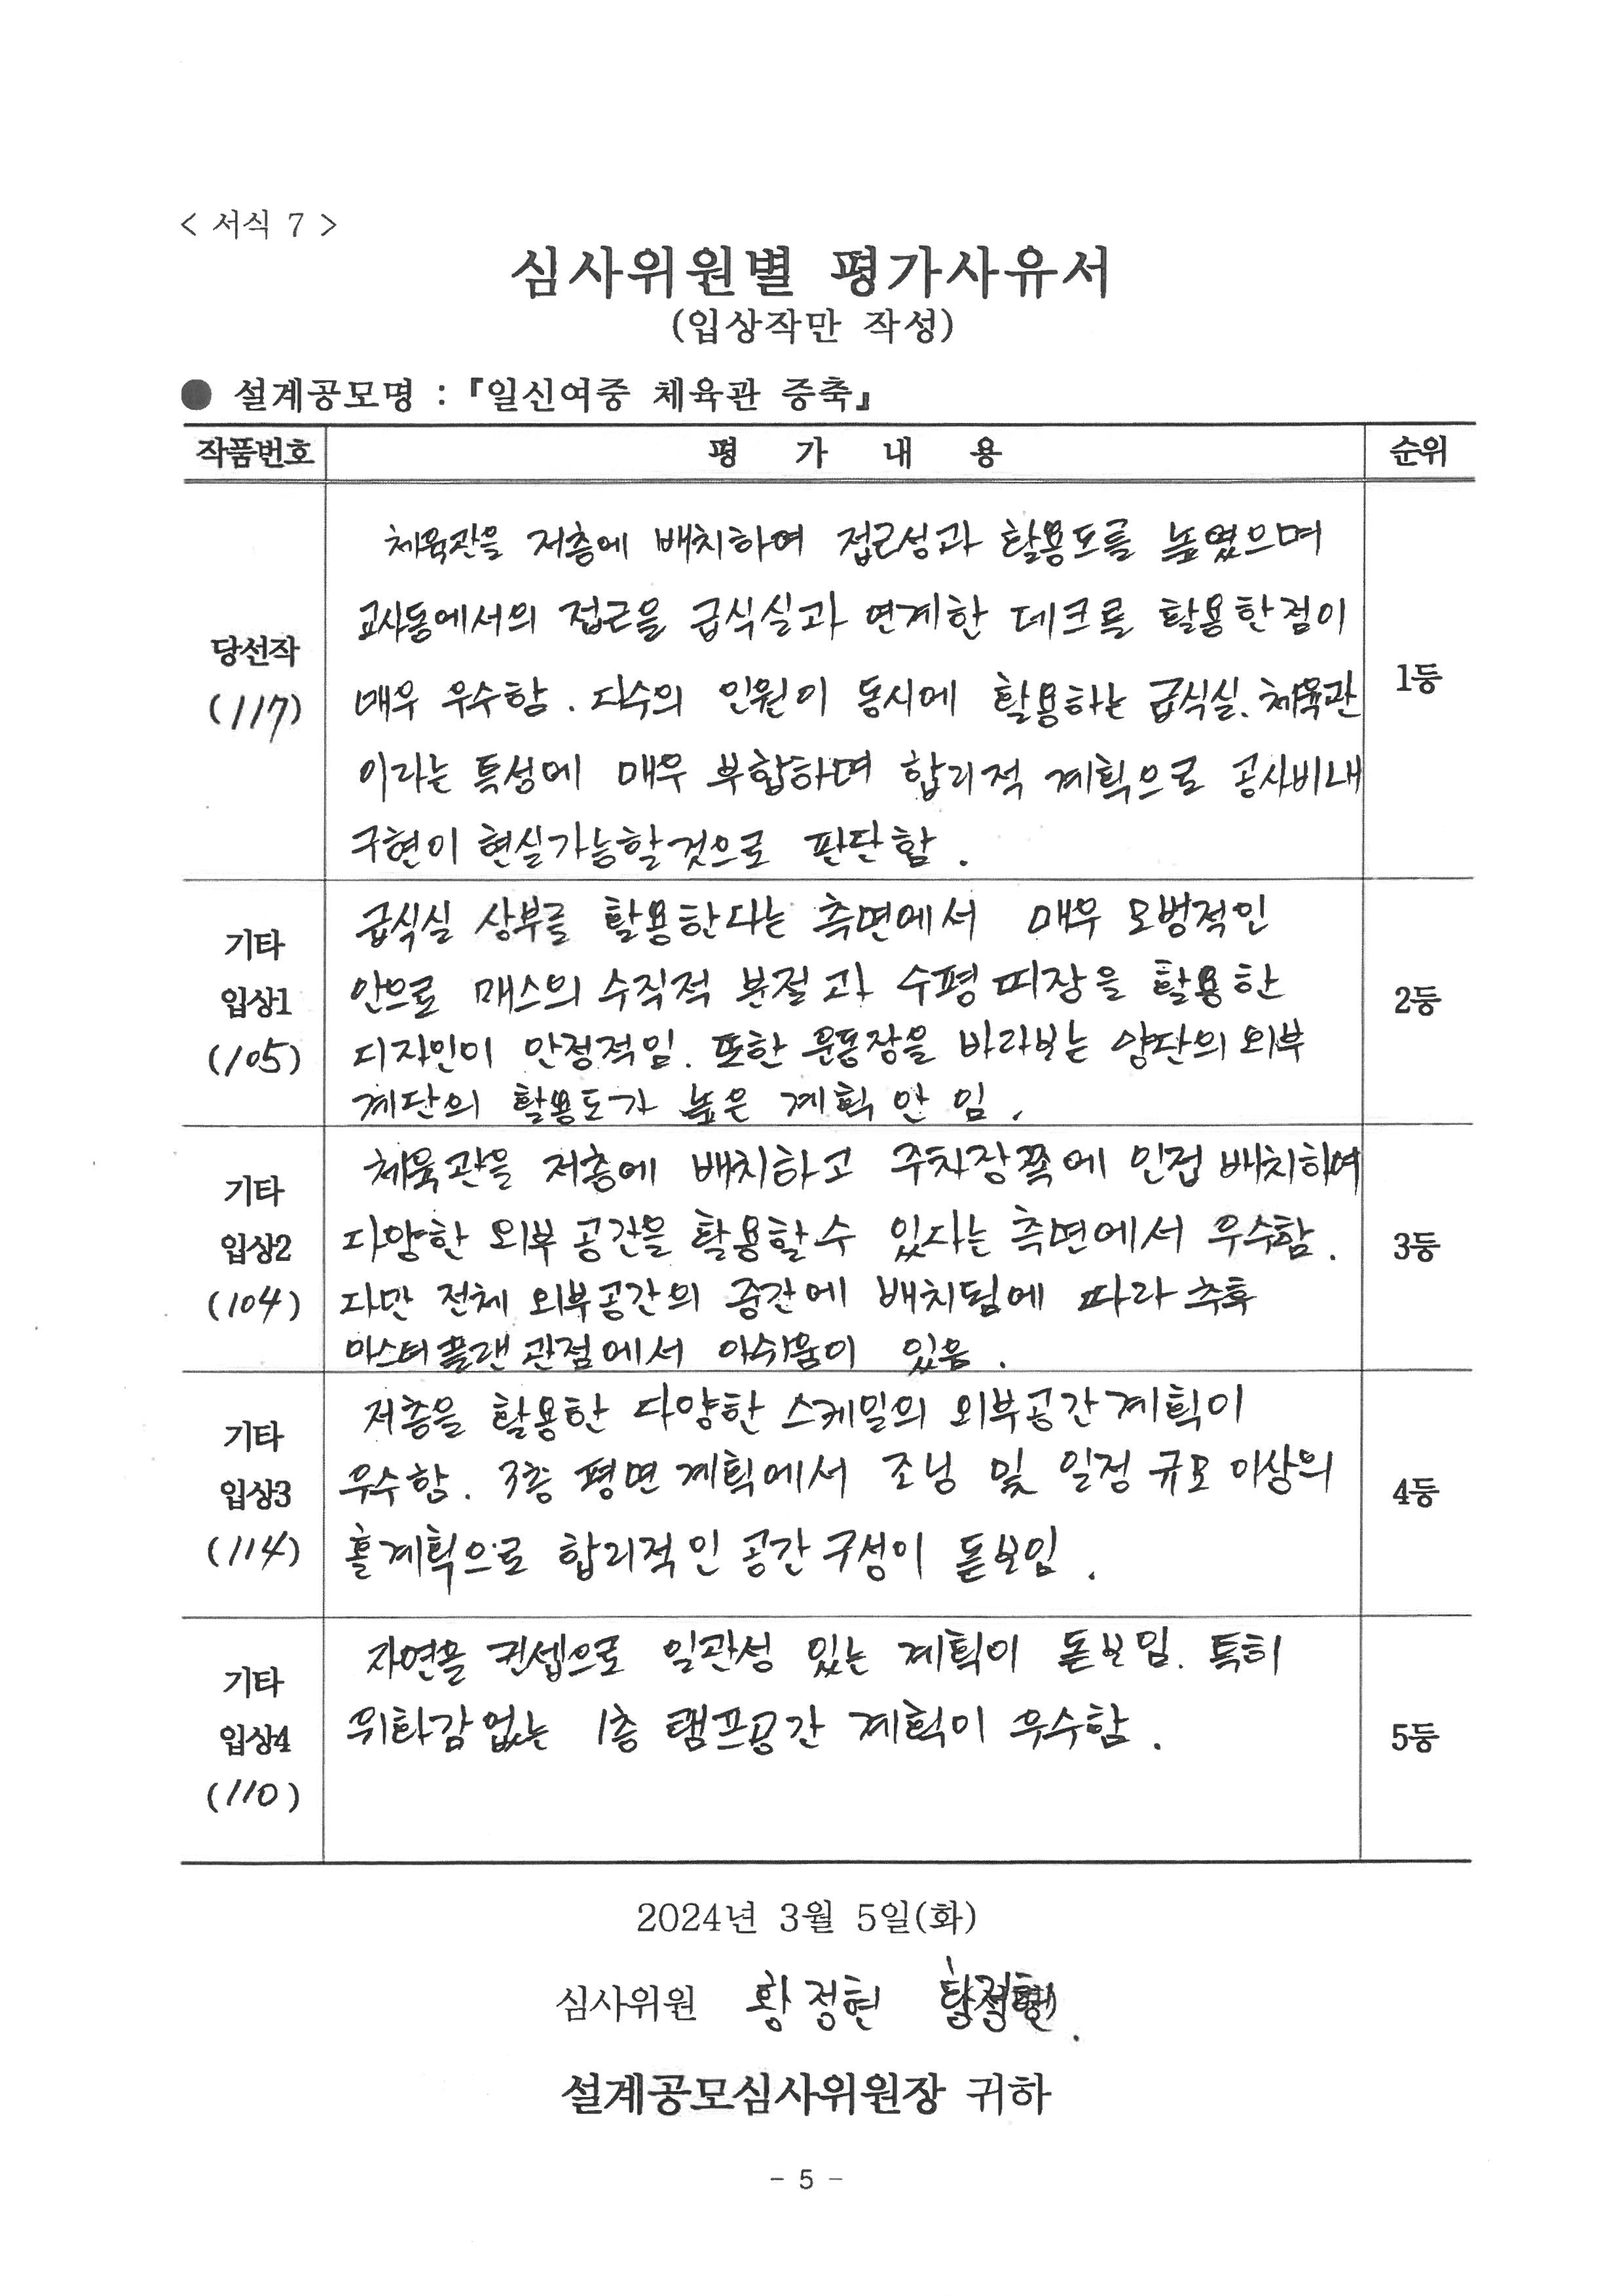 < 서식 7 >
심사위원별 평가사유서
(입상작만 작성)
● 설계공모명 : 『일신여중 체육관 증축』
작품번호 평 가 내 용 순위
당선작
(117)
체육관을 저층에 배치하여 접근성과 활용도를 높였으며
교사동에서의 접근을 급식실과 연계한 데크를 활용한점이
매우 우수함. 다수의 인원이 동시에 활용하는 급식실, 체육관
이라는 특성에 매우 부합하며 합리적 계획으로 공사비내
구현이 현실가능할것으로 판단함.
1등
기타
입상1
(105)
급식실 상부를 활용한다는 측면에서 매우 모범적인
안으로 매스의 수직적 분절과 수평띠장을 활용한
디자인이 안정적임. 또한 운동장을 바라보는 양단의 외부
계단의 활용도가 높은 계획안임.
2등
기타
입상2
(104)
체육관을 저층에 배치하고 주차장쪽에 인접 배치하여
다양한 외부 공간을 활용할수 있다는 측면에서 우수함.
다만 전체 외부공간의 중간에 배치됨에 따라 추후
마스터플랜 관점에서 아쉬움이 있음.
3등
기타
입상3
(114)
저층을 활용한 다양한 스케일의 외부공간계획이
우수함. 3층 평면계획에서 조닝 및 일정규모이상의
홀계획으로 합리적인 공간구성이 돋보임.
4등
기타
입상4
(110)
자연을 컨셉으로 일관성 있는 계획이 돋보임. 특히
위화감없는 1층 램프공간 계획이 우수함.
5등
2024년 3월 5일(화)
심사위원 황정현 황정현
설계공모심사위원장 귀하
- 5 -